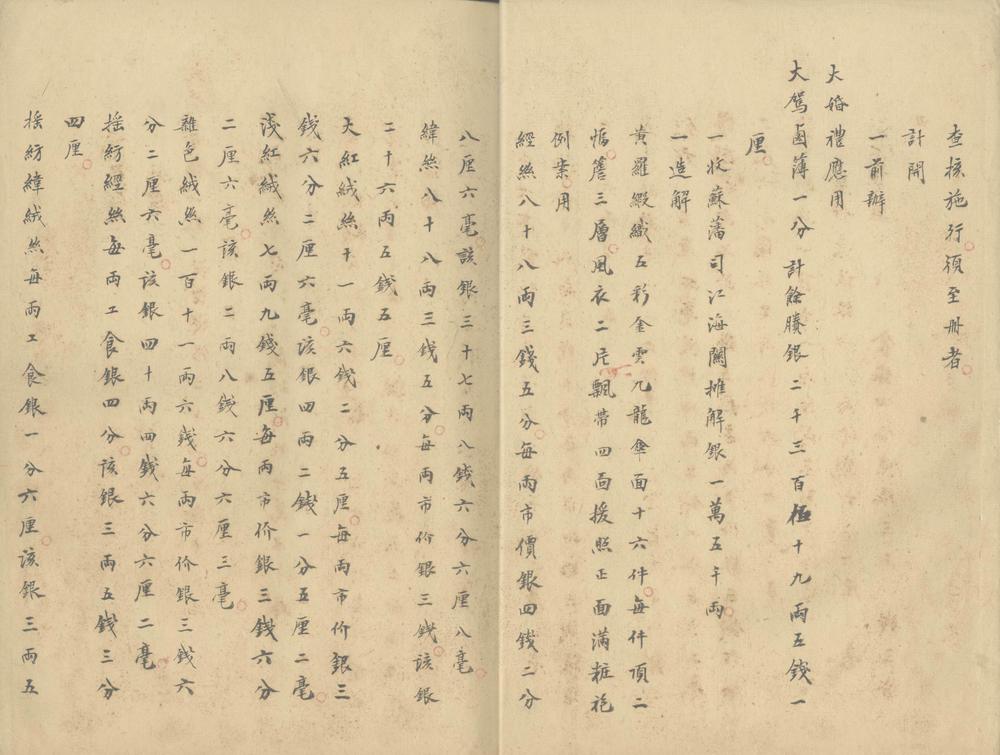 查核施行須至册者
計開
一前辦
大婚禮應用
大駕鹵薄一分計餘賸銀二千三百伍十九兩五錢一
厘
一收蘇藩司江海關攤解銀一萬五千兩
一造解
黄羅緞織五彩金雲九龍傘面十六件每件頂二
帪簷三層風衣二片飄帶四面援照正面滿粧袍
例案用
經絲八十八兩三錢五分每兩市價銀四錢二分
八厘六毫該銀三十七兩八錢六分六厘八毫
緯絲八十八兩三錢五分每兩市价銀三錢該銀
二十六兩五錢五厘
大紅絨絲十一兩六錢二分五厘每兩市价銀三
錢六分二厘六毫該銀四兩二錢一分五厘二毫
淺紅絨絲七兩九錢五厘每兩市价銀三錢六分
二厘六毫該銀二兩八錢六分六厘三毫
雜色絨絲一百十一兩六錢每兩市价銀三錢六
分二厘六毫該銀四十兩四錢六分六厘二毫
摇紡經絲每兩工食銀四分該銀三兩五錢三分
四厘
摇紡緯絨絲每兩工食銀一分六厘該銀三兩五